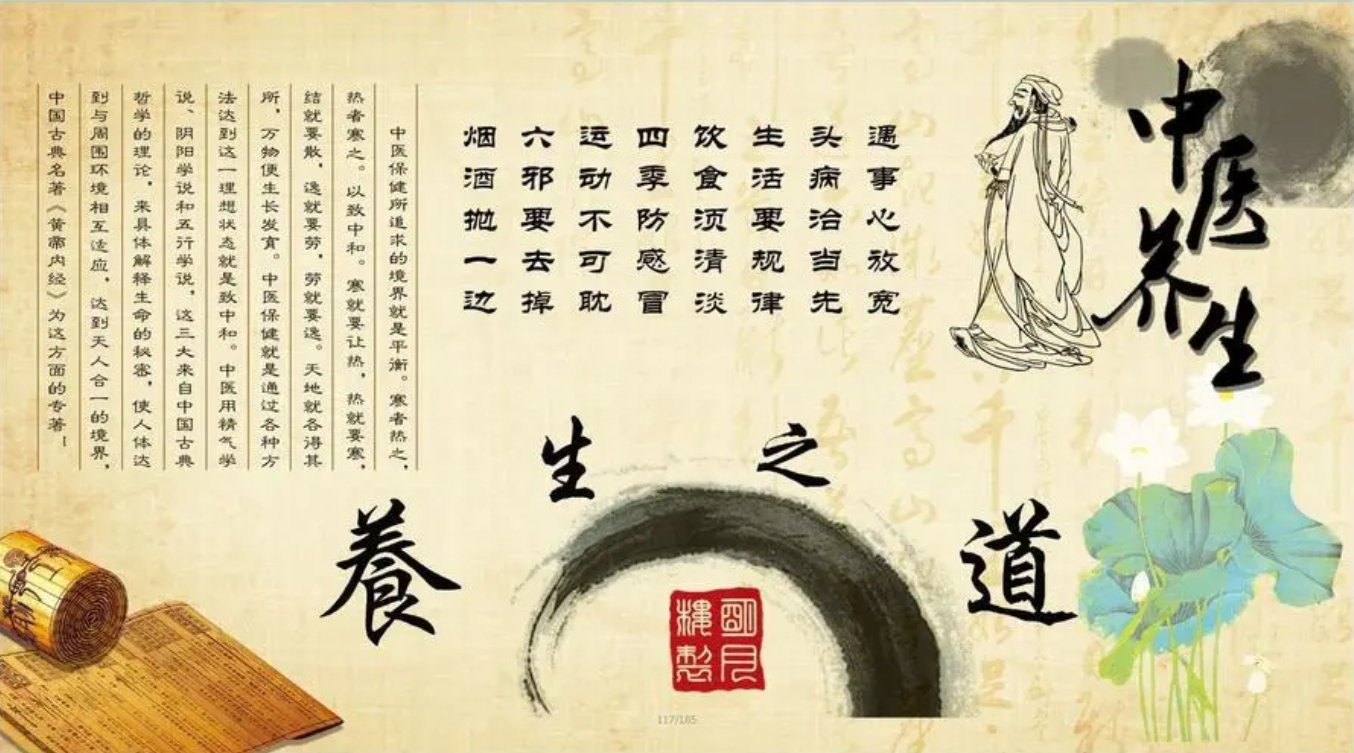 中医养生
遇事心放宽
头病治当先
生活要规律
饮食须清淡
四季防感冒
运动不可耽
六邪要去掉
烟酒抛一边
中医保健所追求的境界就是平衡。寒者热之，
热者寒之。以致中和。寒就要让热，热就要寒，
结就要散，逸就要劳，劳就要逸。天地就各得其
所，万物便生长发育。中医保健就是通过各种方
法达到这一理想状态就是致中和。中医用精气学
说、阴阳学说和五行学说，这三大来自中国古典
哲学的理论，来具体解释生命的秘密，使人体达
到与周围环境相互适应，达到天人合一的境界，
中国古典名著《黄帝内经》为这方面的专著！
養生之道
明月
樓製
117/185